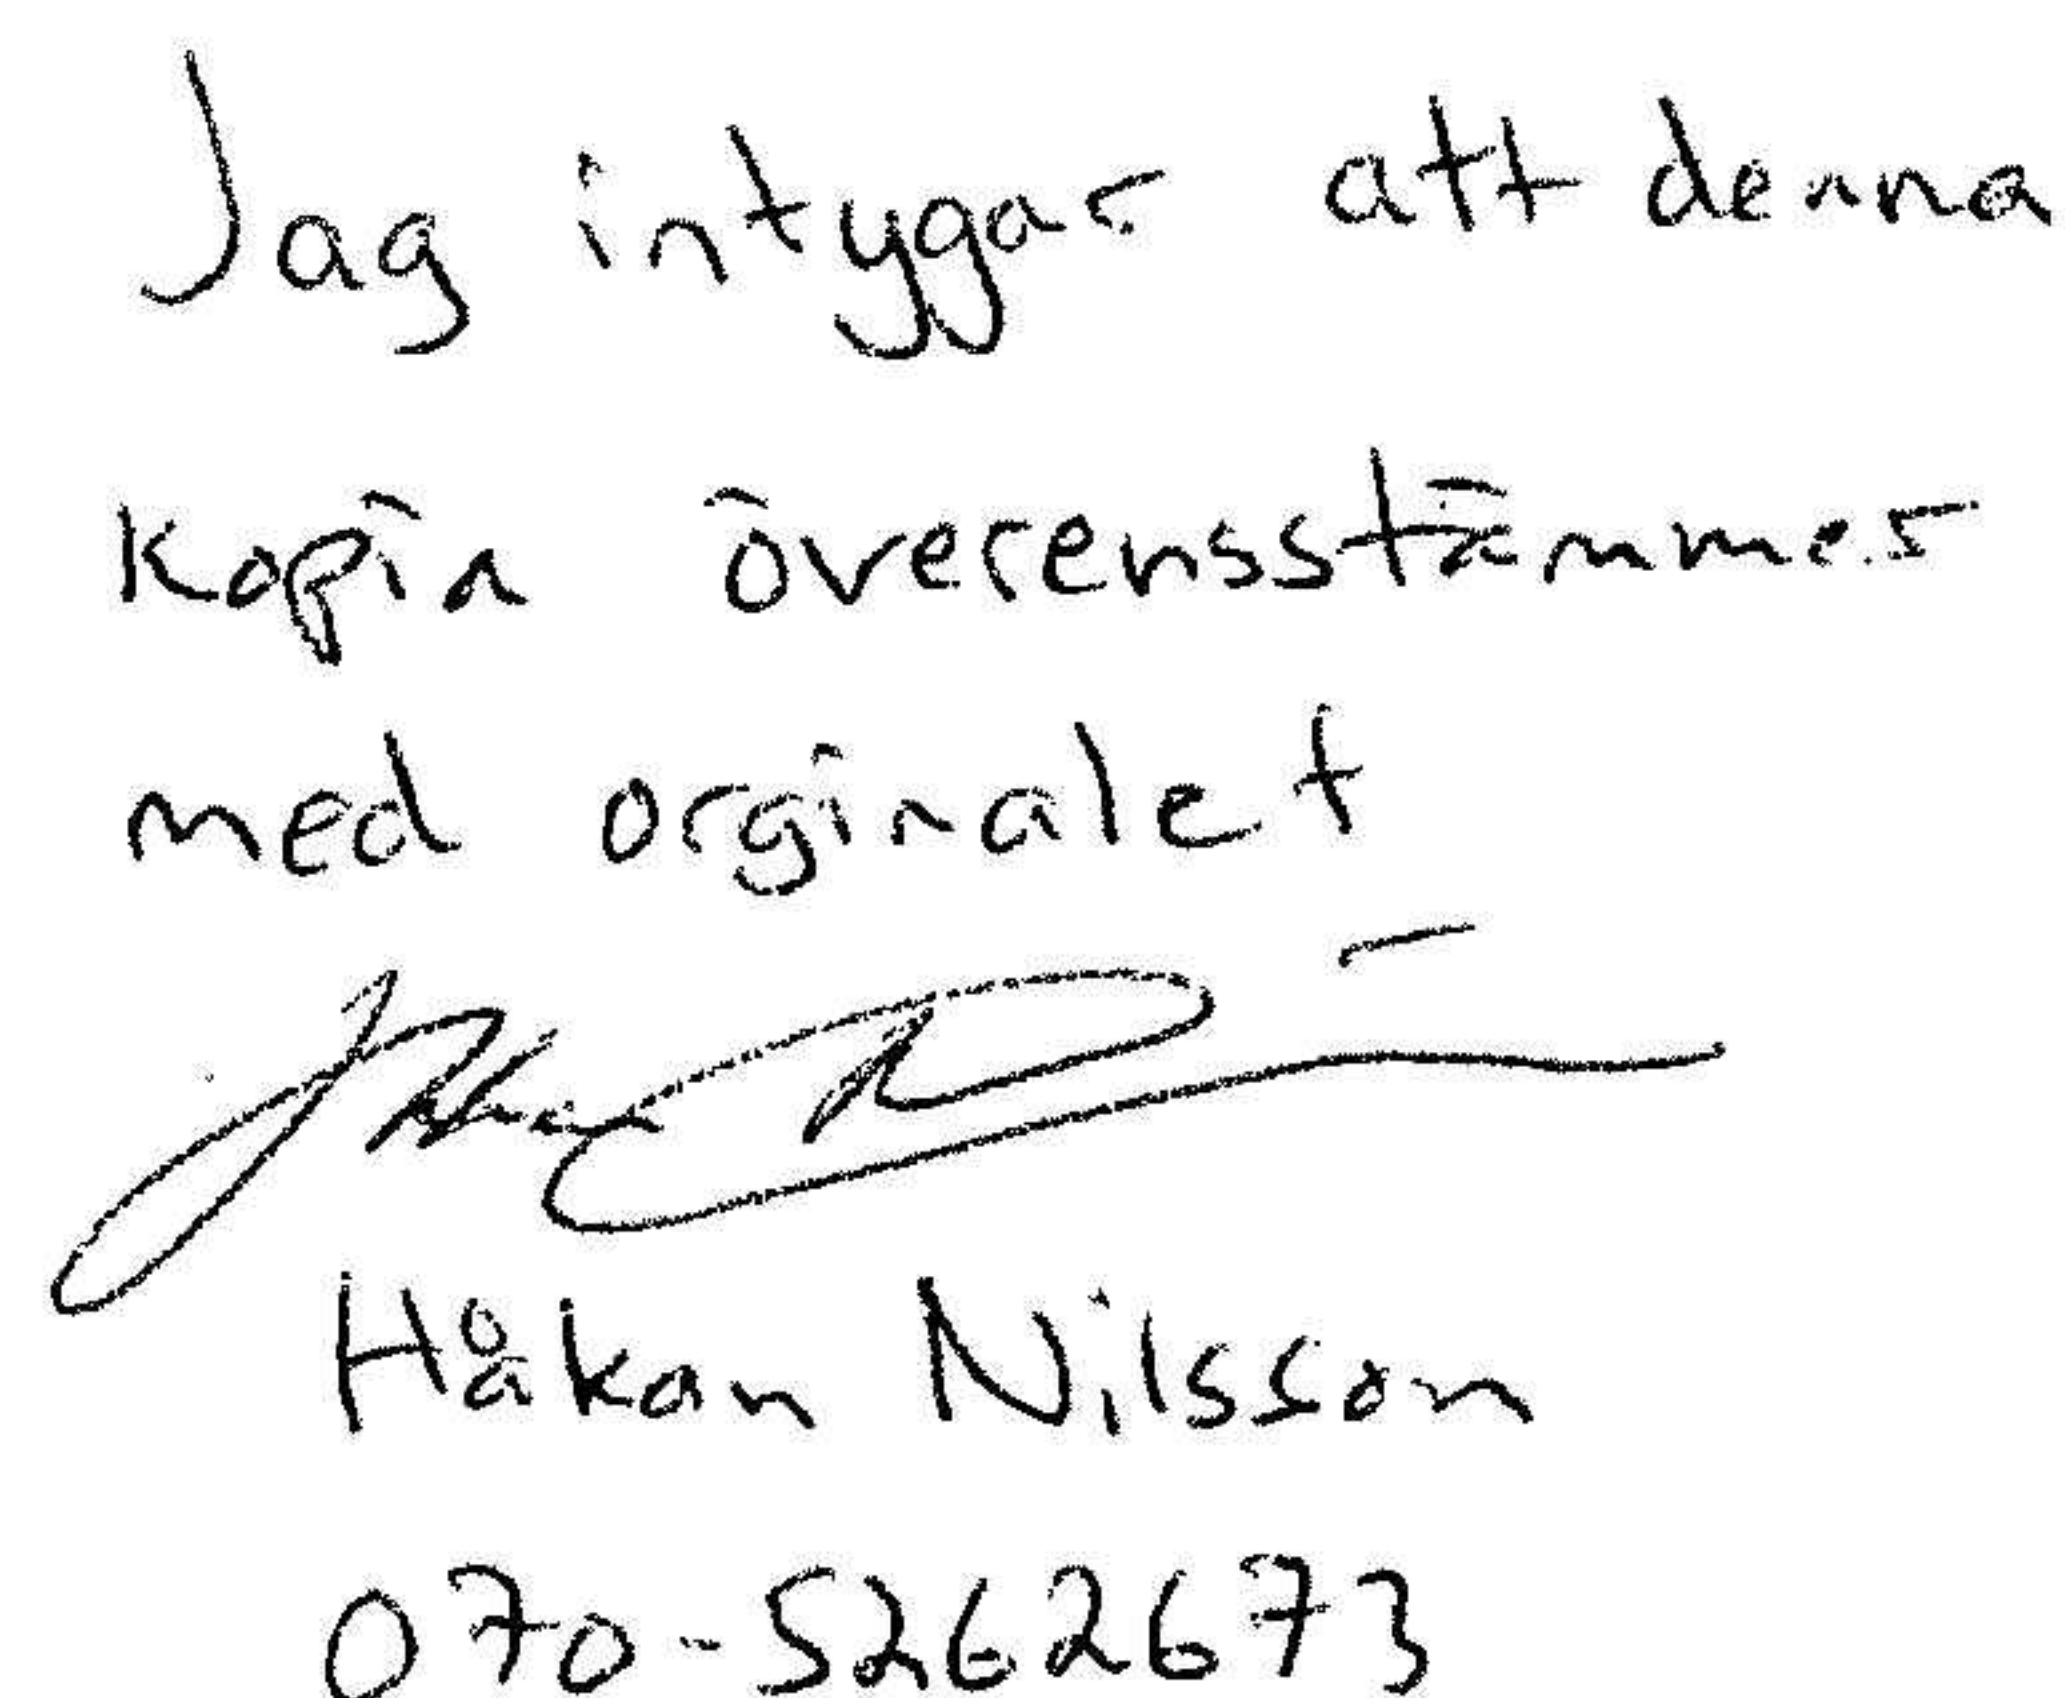 Jag intygar att denna
kopia överensstämmer
med orginalet
Håkan Nilsson
070-5262673